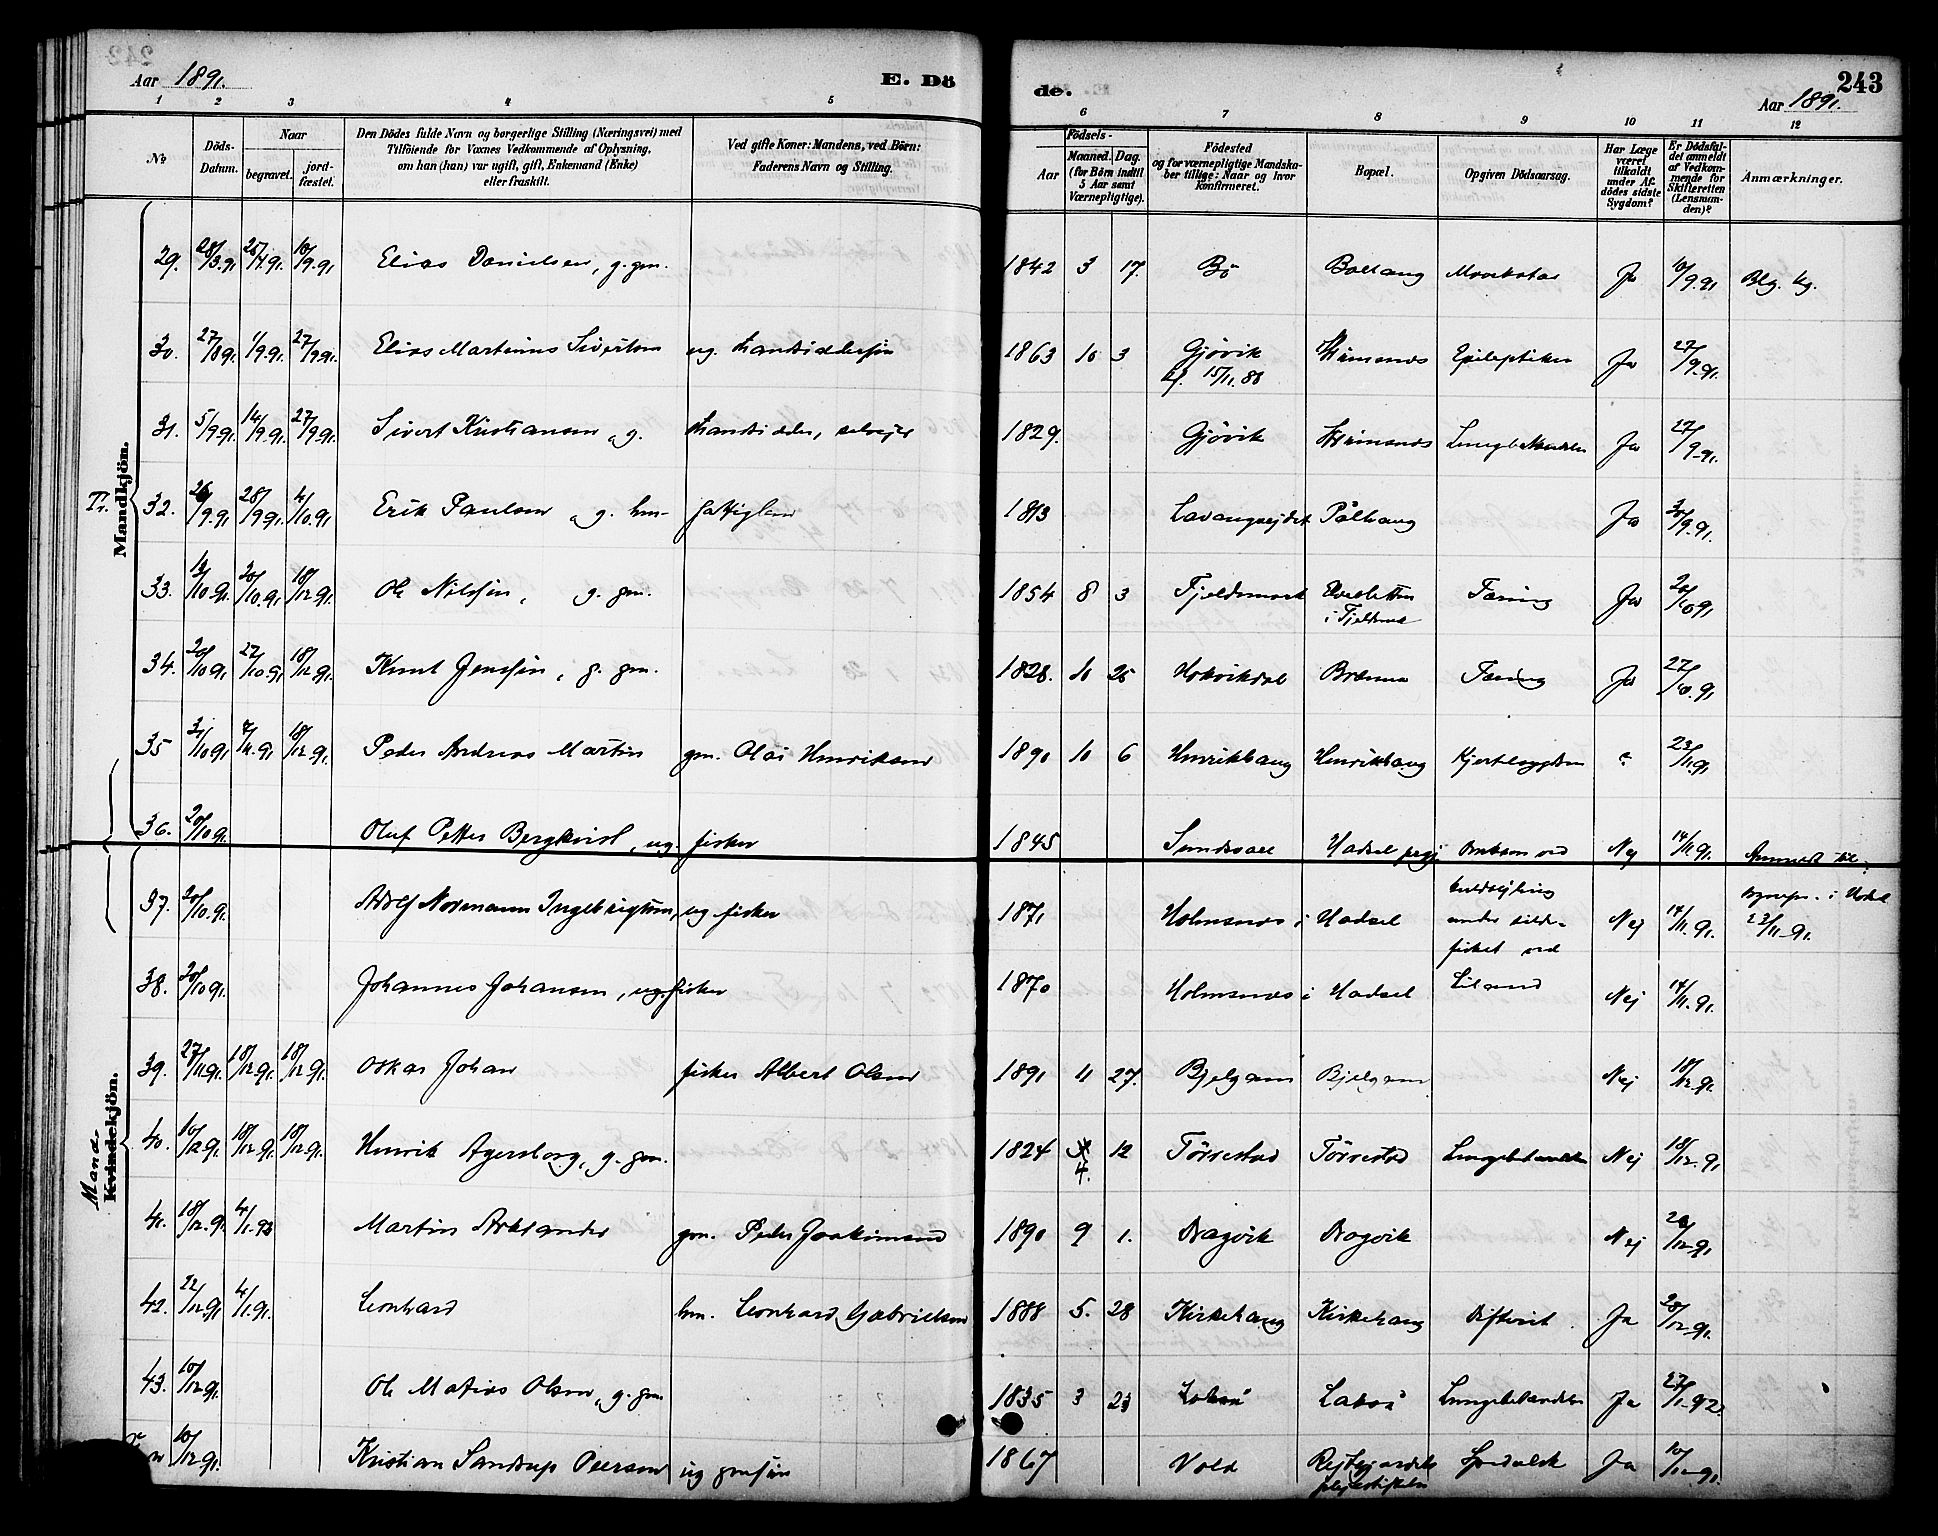 Aar 1891. E. Dö
de. 243
Aar 1891.
1 2 3 4 5
6 7 8 9 10 11 12
No
Döds-Datum.
Naar
begravet.
jord-fæstet.
Den Dödes fulde Navn og borgerlige Stilling (Næringsvei) med
Tilföiende for Voxnes Vedkommende af Oplysning,
om han (hun) var ugift, gift, Enkemand (Enke)
eller fraskilt.
Ved gifte Koner: Mandens, ved Börn:
Faderens Navn og Stilling.
Födsels-
Aar
Maaned. Dag.
(for Börn indtil
5 Aar samt
Værnepligtige).
Födested
og for værnepligtige Mandska-
ber tillige: Naar og hvor
konfirmeret.
Bopæl.
Opgiven Dödsaarsag.
Har Læge
været
tilkaldt
under Af-
dödes sidste
Sygdom?
Er Dödsfal-
det anmeldt
af Vedkom-
mende for
Skifteretten
(Lensman-
den)?
Anmærkninger.
Mandkjön.
29. 28/3.91 25/4.91. 10/9.91 Elias Danielsen, g. gm. 1842 3 17. Bö Ballang Ja 10/9.91
30. 27/8 91. 1/9.91. 27/9.91. Elias Martinus Sivertsen ug. 1863 10 3 Gjövik Epileptiker Ja 27/9.91.
kf. 15/11.80
31. 5/9.91. 14/9.91. 27/9.91. Sivert Kristiansen, g. 1829. Gjövik Ja 27/9.91.
Tr. 32. 26/9.91 28/9.91. 4/10.91 Erik Paulsen, g. hm. fattiglem 1813 Lavangsejdet Pålhaug Ja 30/9.91.
33. 20/10.91. 18/12.91 Ole Nilssen, g. gm. 1854 8 3 Fjeldsmark Tæring Ja 20/10 91
34. 20/10 91 27/10.91 18/12.91. Knut Jenssen, g. gm. 1828. 10 25 Tæring Ja 27/10.91
35 31/10 91 7/11.91 18/12.91. Peder Andreas Martin gm. Olai Henriksen 1890 10 6 Henrikhaug Henrikhaug Hjertesygdom 23/11.91
36. 20/10 91. Oluf Petter Bergkvist, ug. fisker 1845 Sundsvall Hadsel prgj. Omkom ved Nej 14/11.91. Anmeldt til
37. 20/10.91. Adolf Normann Ingebrigtsen, ug fisker 1871 Holmsnes i Hadsel kuldsejling Nej 14/11.91. sognepr. i Hadsel
under silde- 23/11.91.
fisket ved
38. 20/10 91. Johannes Johansen, ug. fisker 1870 Holmsnes i Hadsel Liland Nej 14/11.91.
39. 27/11.91. 18/12.91. 18/12.91. Oskar Johan fisker Albert Olsen 1891 11 27. Bjelgam Bjelgam Nej 18/12.91.
Mand
Kvindekjön.
40. 10/12 91 18/12.91 18/12.91. Henrik Agersborg, g. gm. 1824 4. 12 Törrestad Törrestad Lungebetændelse Nej 18/12.91
41. 18/12.91 4/1.92 Martin Aleksander gm. Peder Joakimsen 1890 9 1. Dragvik Dragvik Nej 20/12.91
42. 22/12.91 4/1.91. Leonhard hm. Leonhard Gabrielsen 1888 5. 28 Kirkehaug Kirkehaug Difterit Ja 28/12.91.
43. 10/12 91. Ole Matias Olsen, g. gm 1835 3 23 Lakså Lakså Lungebetændelse Ja 27/1.92.
10/12 91. Kristian Sandrup Peersen ug gmsön 1867 Vold Spedalsk Ja